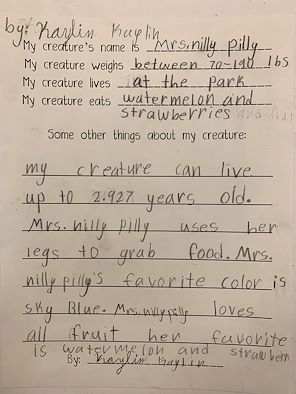 by: Kaylin Kaylin
My creature's name is Mrs.nilly pilly
My creature weighs between 70-190 lbs
My creature lives at the park
My creature eats watermelon and
strawberries and fruit
Some other things about my creature:
my creature can live
up to 2.927 years old.
Mrs. nilly pilly uses her
legs to grab food. Mrs.
nilly pilly's favorite color is
sky Blue. Mrs. nilly pilly loves
all fruit her favorite
is watermelon and strawberry
By: Kaylin Kaylin